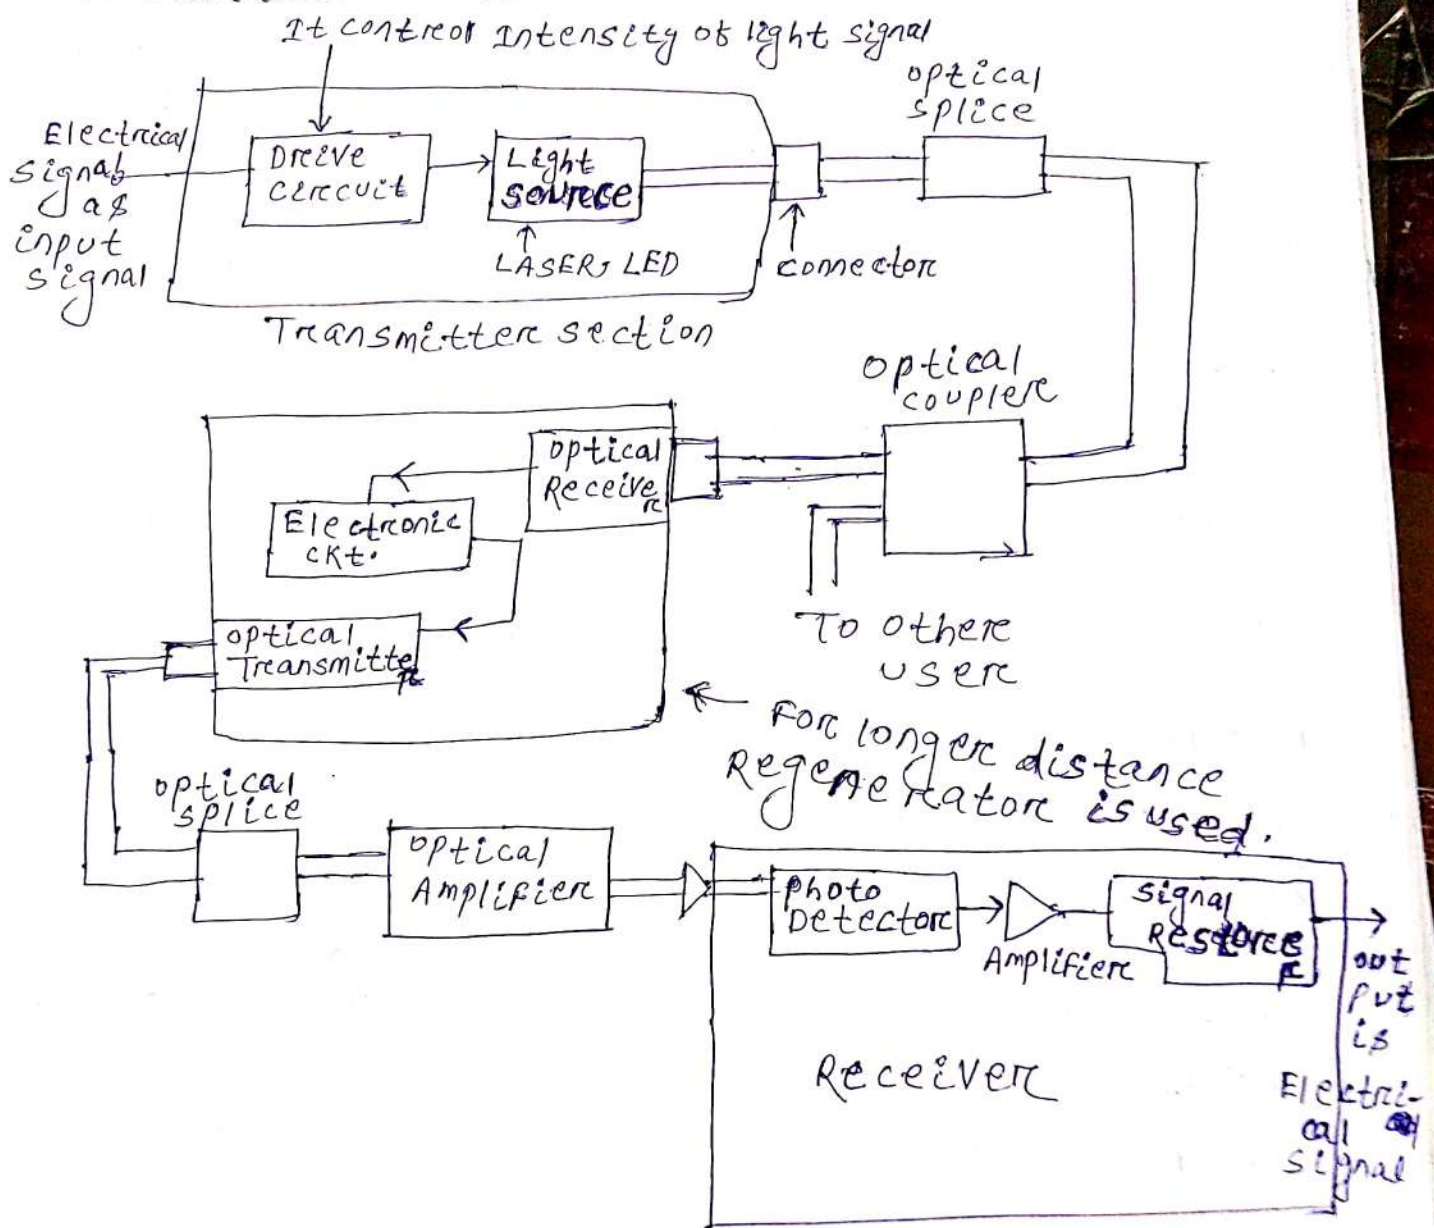 It control Intensity of light signal
Electrical
signal
as
input
signal
Drive
circuit
Light
source
LASER, LED
connector
optical
splice
Transmitter section
Optical
coupler
To other
user
optical
Receiver
Electronic
ckt.
optical
Transmitter
For longer distance
Regenerator is used.
optical
splice
optical
Amplifier
photo
Detector
Amplifier
signal
Restorer
Receiver
out
put
is
Electri-
cal
signal